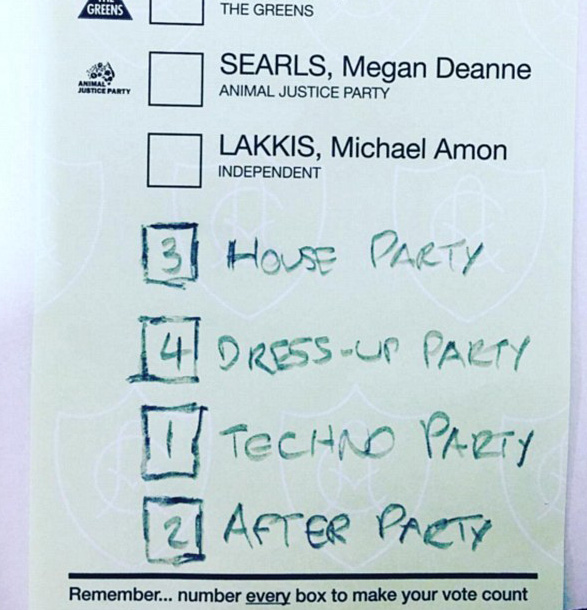 THE
GREENS
THE GREENS
SEARLS, Megan Deanne
ANIMAL JUSTICE PARTY
ANIMAL
JUSTICE PARTY
LAKKIS, Michael Amon
INDEPENDENT
3 HOUSE PARTY
4 DRESS-UP PARTY
1 TECHNO PARTY
2 AFTER PARTY
Remember... number every box to make your vote count